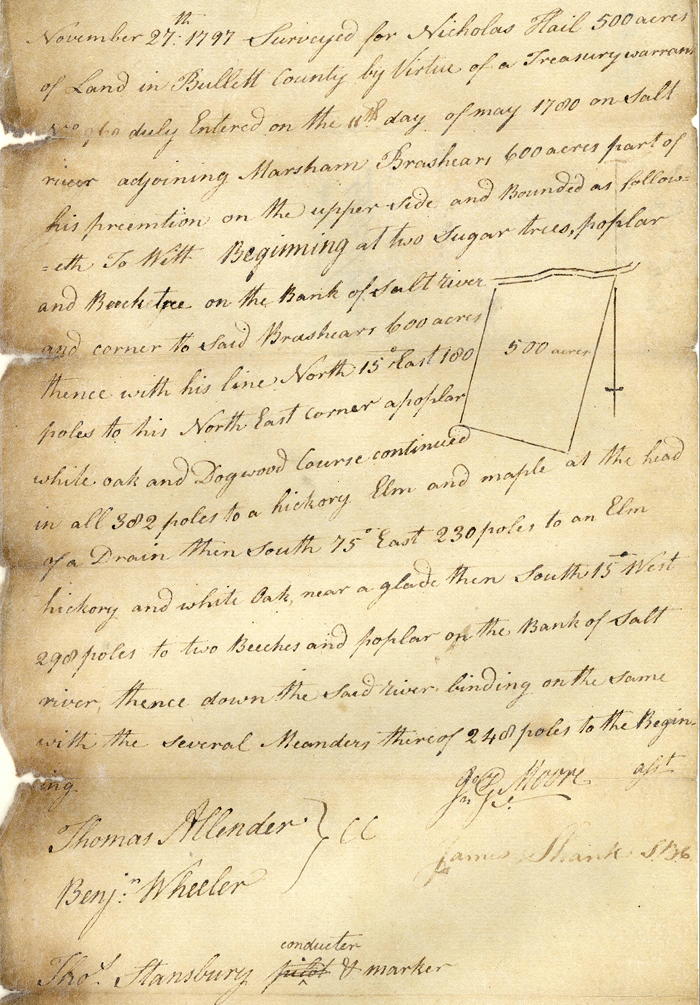 November 27th: 1797 Surveyed for Nicholas Hail 500 acres
of Land in Bullett County by Virtue of a Treasury warrant
duly Entered on the 11th day of may 1780 on Salt
river adjoining Marsham Brashears 600 acres part of
his preemtion on the upper side and Bounded as follow=
=eth To Witt Beginning at two Sugar trees, poplar
and Beech tree on the Bank of Salt river
and corner to said Brashears 600 acres
500 acres
thence with his line North 15° East 180
poles to his North East corner a poplar
white oak and Dogwood Course continued
in all 382 poles to a hickory Elm and maple at the head
of a Drain then South 75° East 230 poles to an Elm
hickory and white Oak, near a glade then South 15° West
298 poles to two Beeches and poplar on the Bank of Salt
river, thence down the said river binding on the same
with the several Meanders thereof 248 poles to the Begin-
ing.
Moore asst
Thomas Allender } CC
James Shank S.B.C
Benj.n Wheeler
conducter
Tho.s Stansbury pilot & marker